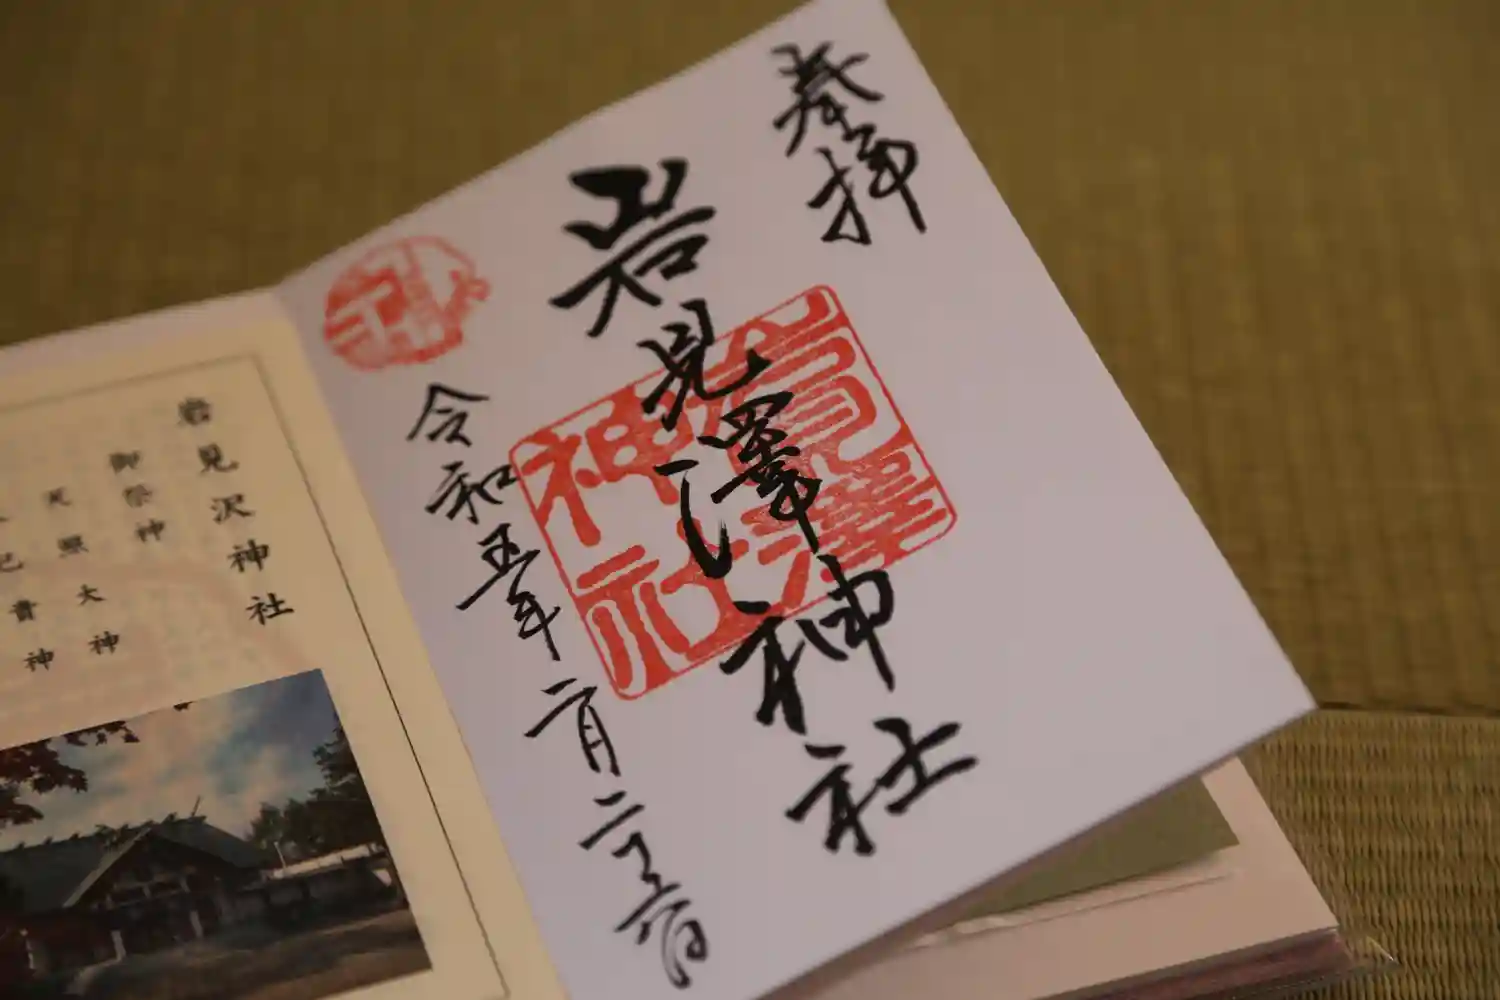 奉拝
岩見澤神社
令和五年二月二十六日
岩見澤神社
岩見沢神社
御祭神
天照大神